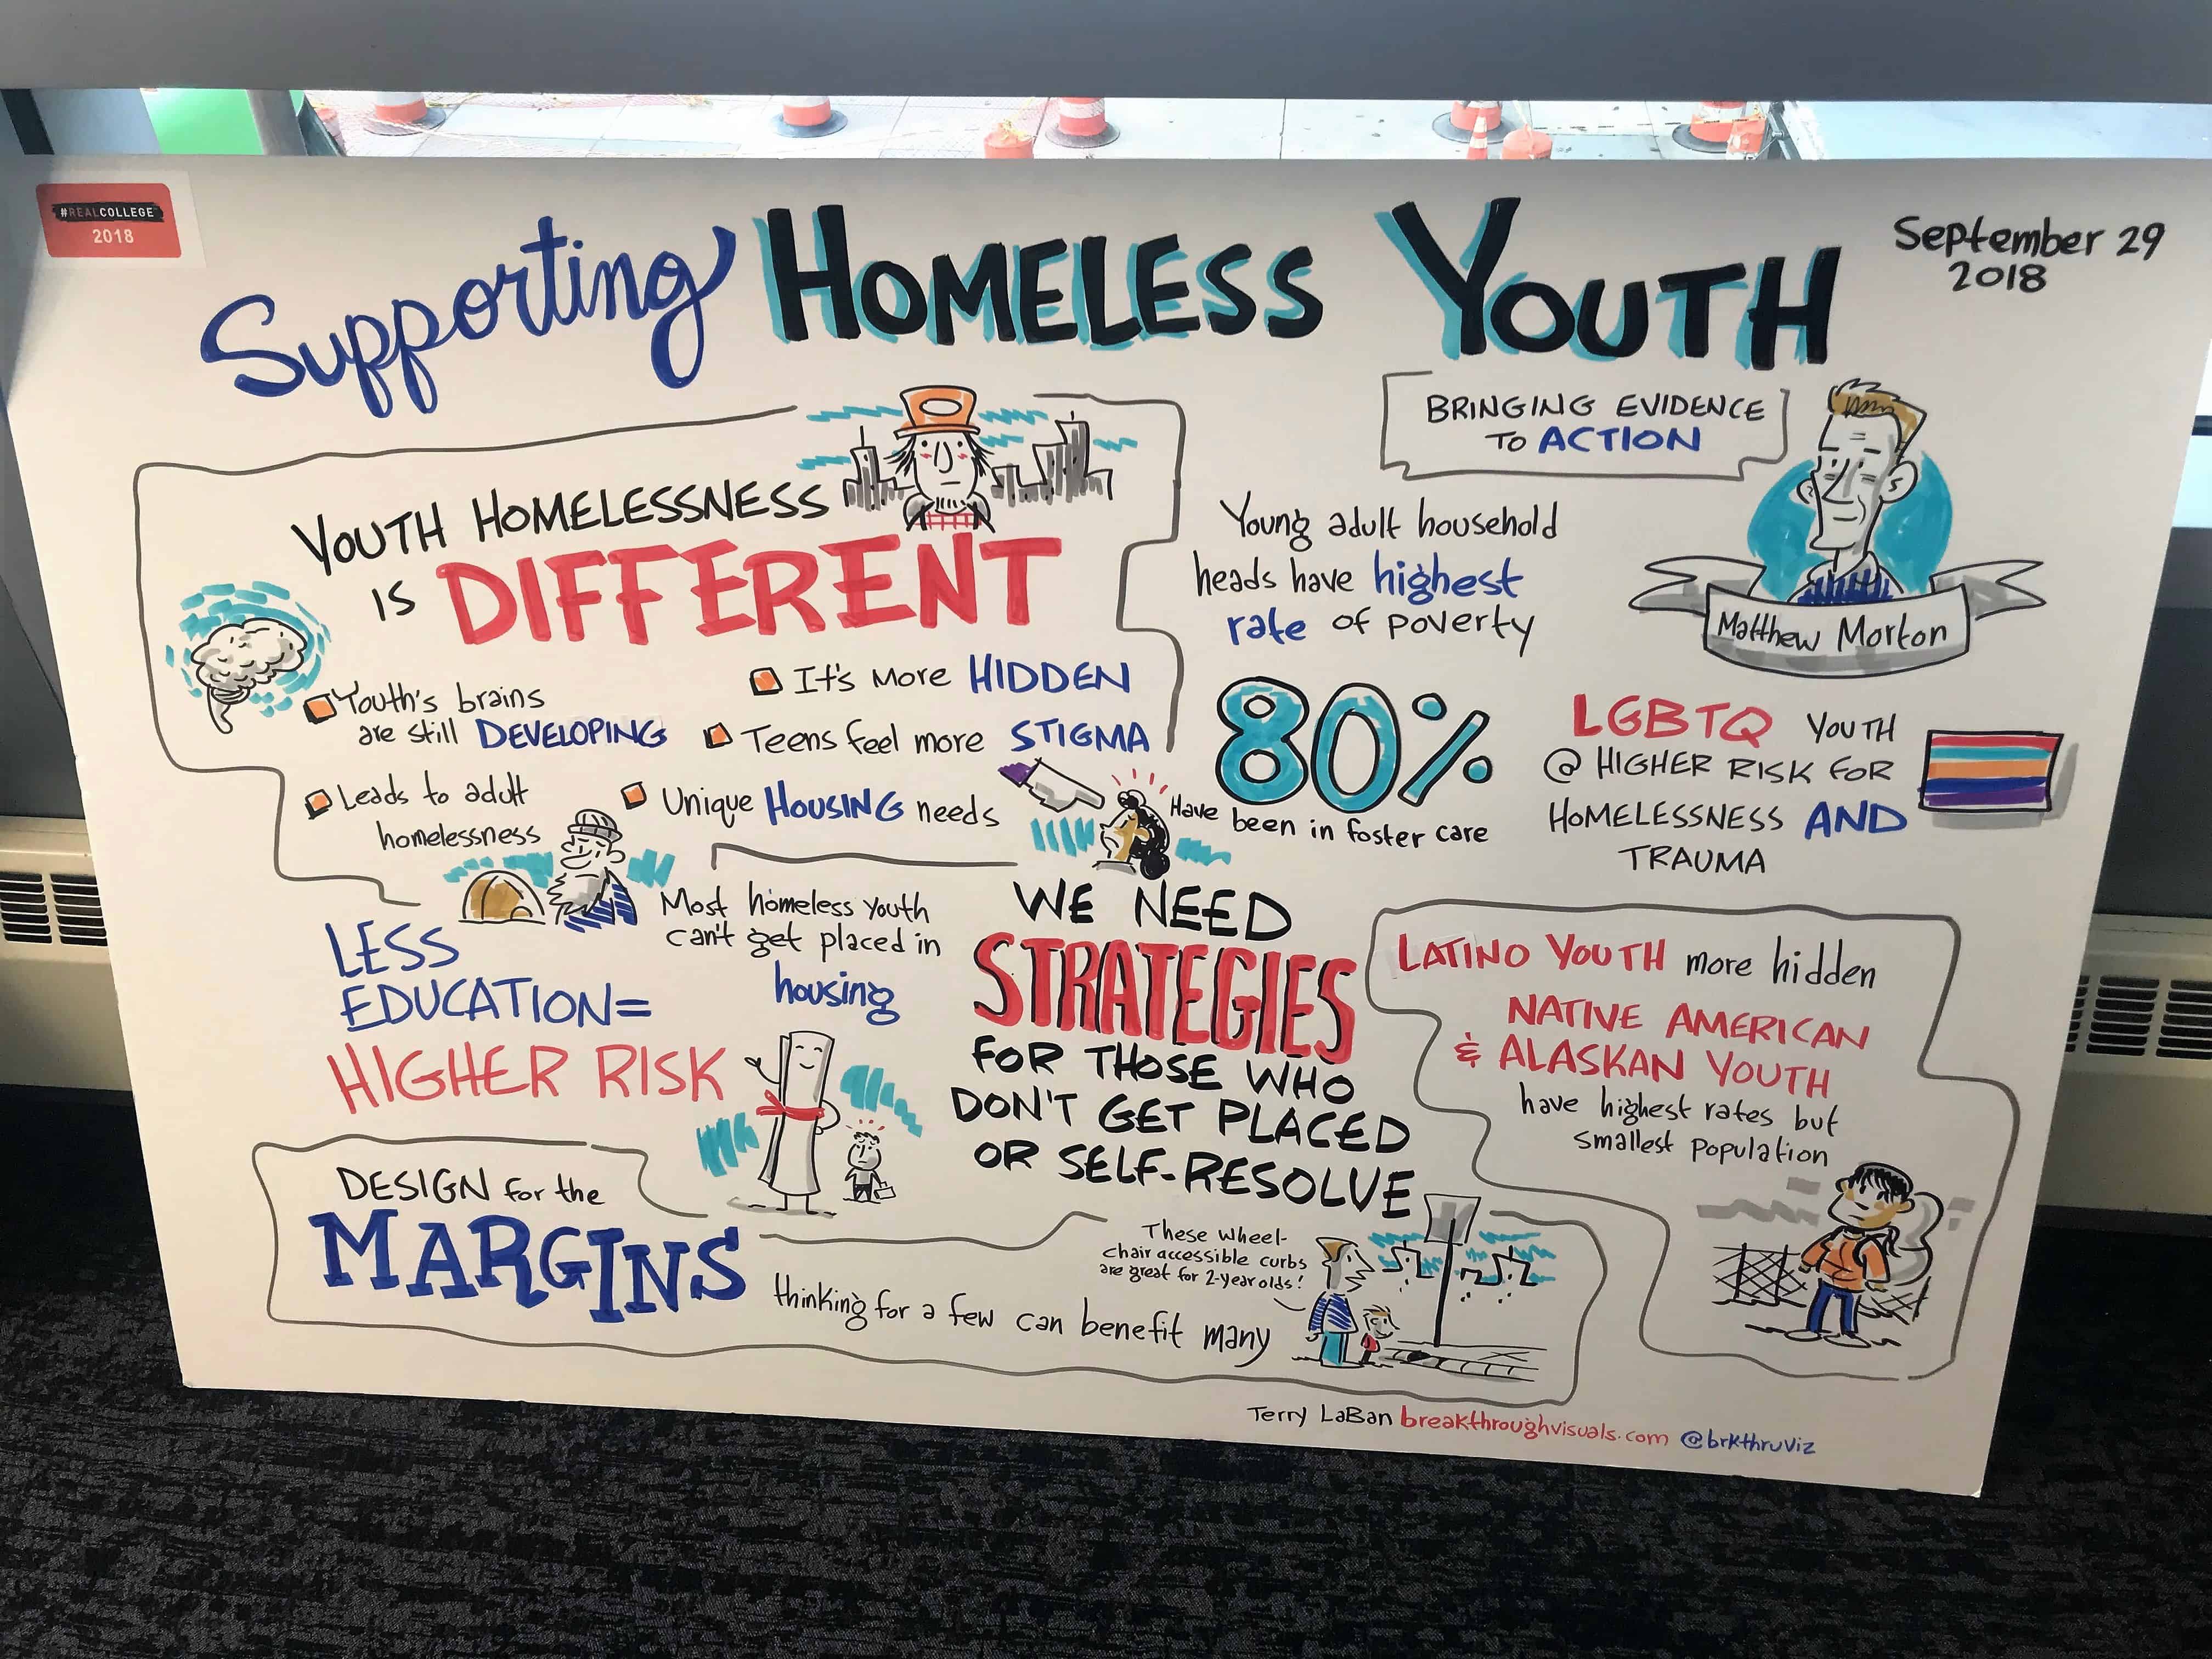 #REALCOLLEGE
2018
Supporting HOMELESS YOUTH
September 29
2018
BRINGING EVIDENCE
TO ACTION
Matthew Morton
YOUTH HOMELESSNESS
IS DIFFERENT
Youth's brains
are still DEVELOPING
It's More HIDDEN
Teens feel more STIGMA
Leads to adult
homelessness
Unique HOUSING needs
Young adult household
heads have highest
rate of poverty
80%
Have been in foster care
LGBTQ YOUTH
@ HIGHER RISK FOR
HOMELESSNESS AND
TRAUMA
LESS
EDUCATION=
HIGHER RISK
Most homeless youth
can't get placed in
housing
WE NEED
STRATEGIES
FOR THOSE WHO
DON'T GET PLACED
OR SELF-RESOLVE
LATINO YOUTH more hidden
NATIVE AMERICAN
& ALASKAN YOUTH
have highest rates but
smallest population
DESIGN for the
MARGINS
thinking for a few can benefit many
These wheel-
chair accessible curbs
are great for 2-year olds!
Terry LaBan breakthroughvisuals.com @brkthruviz